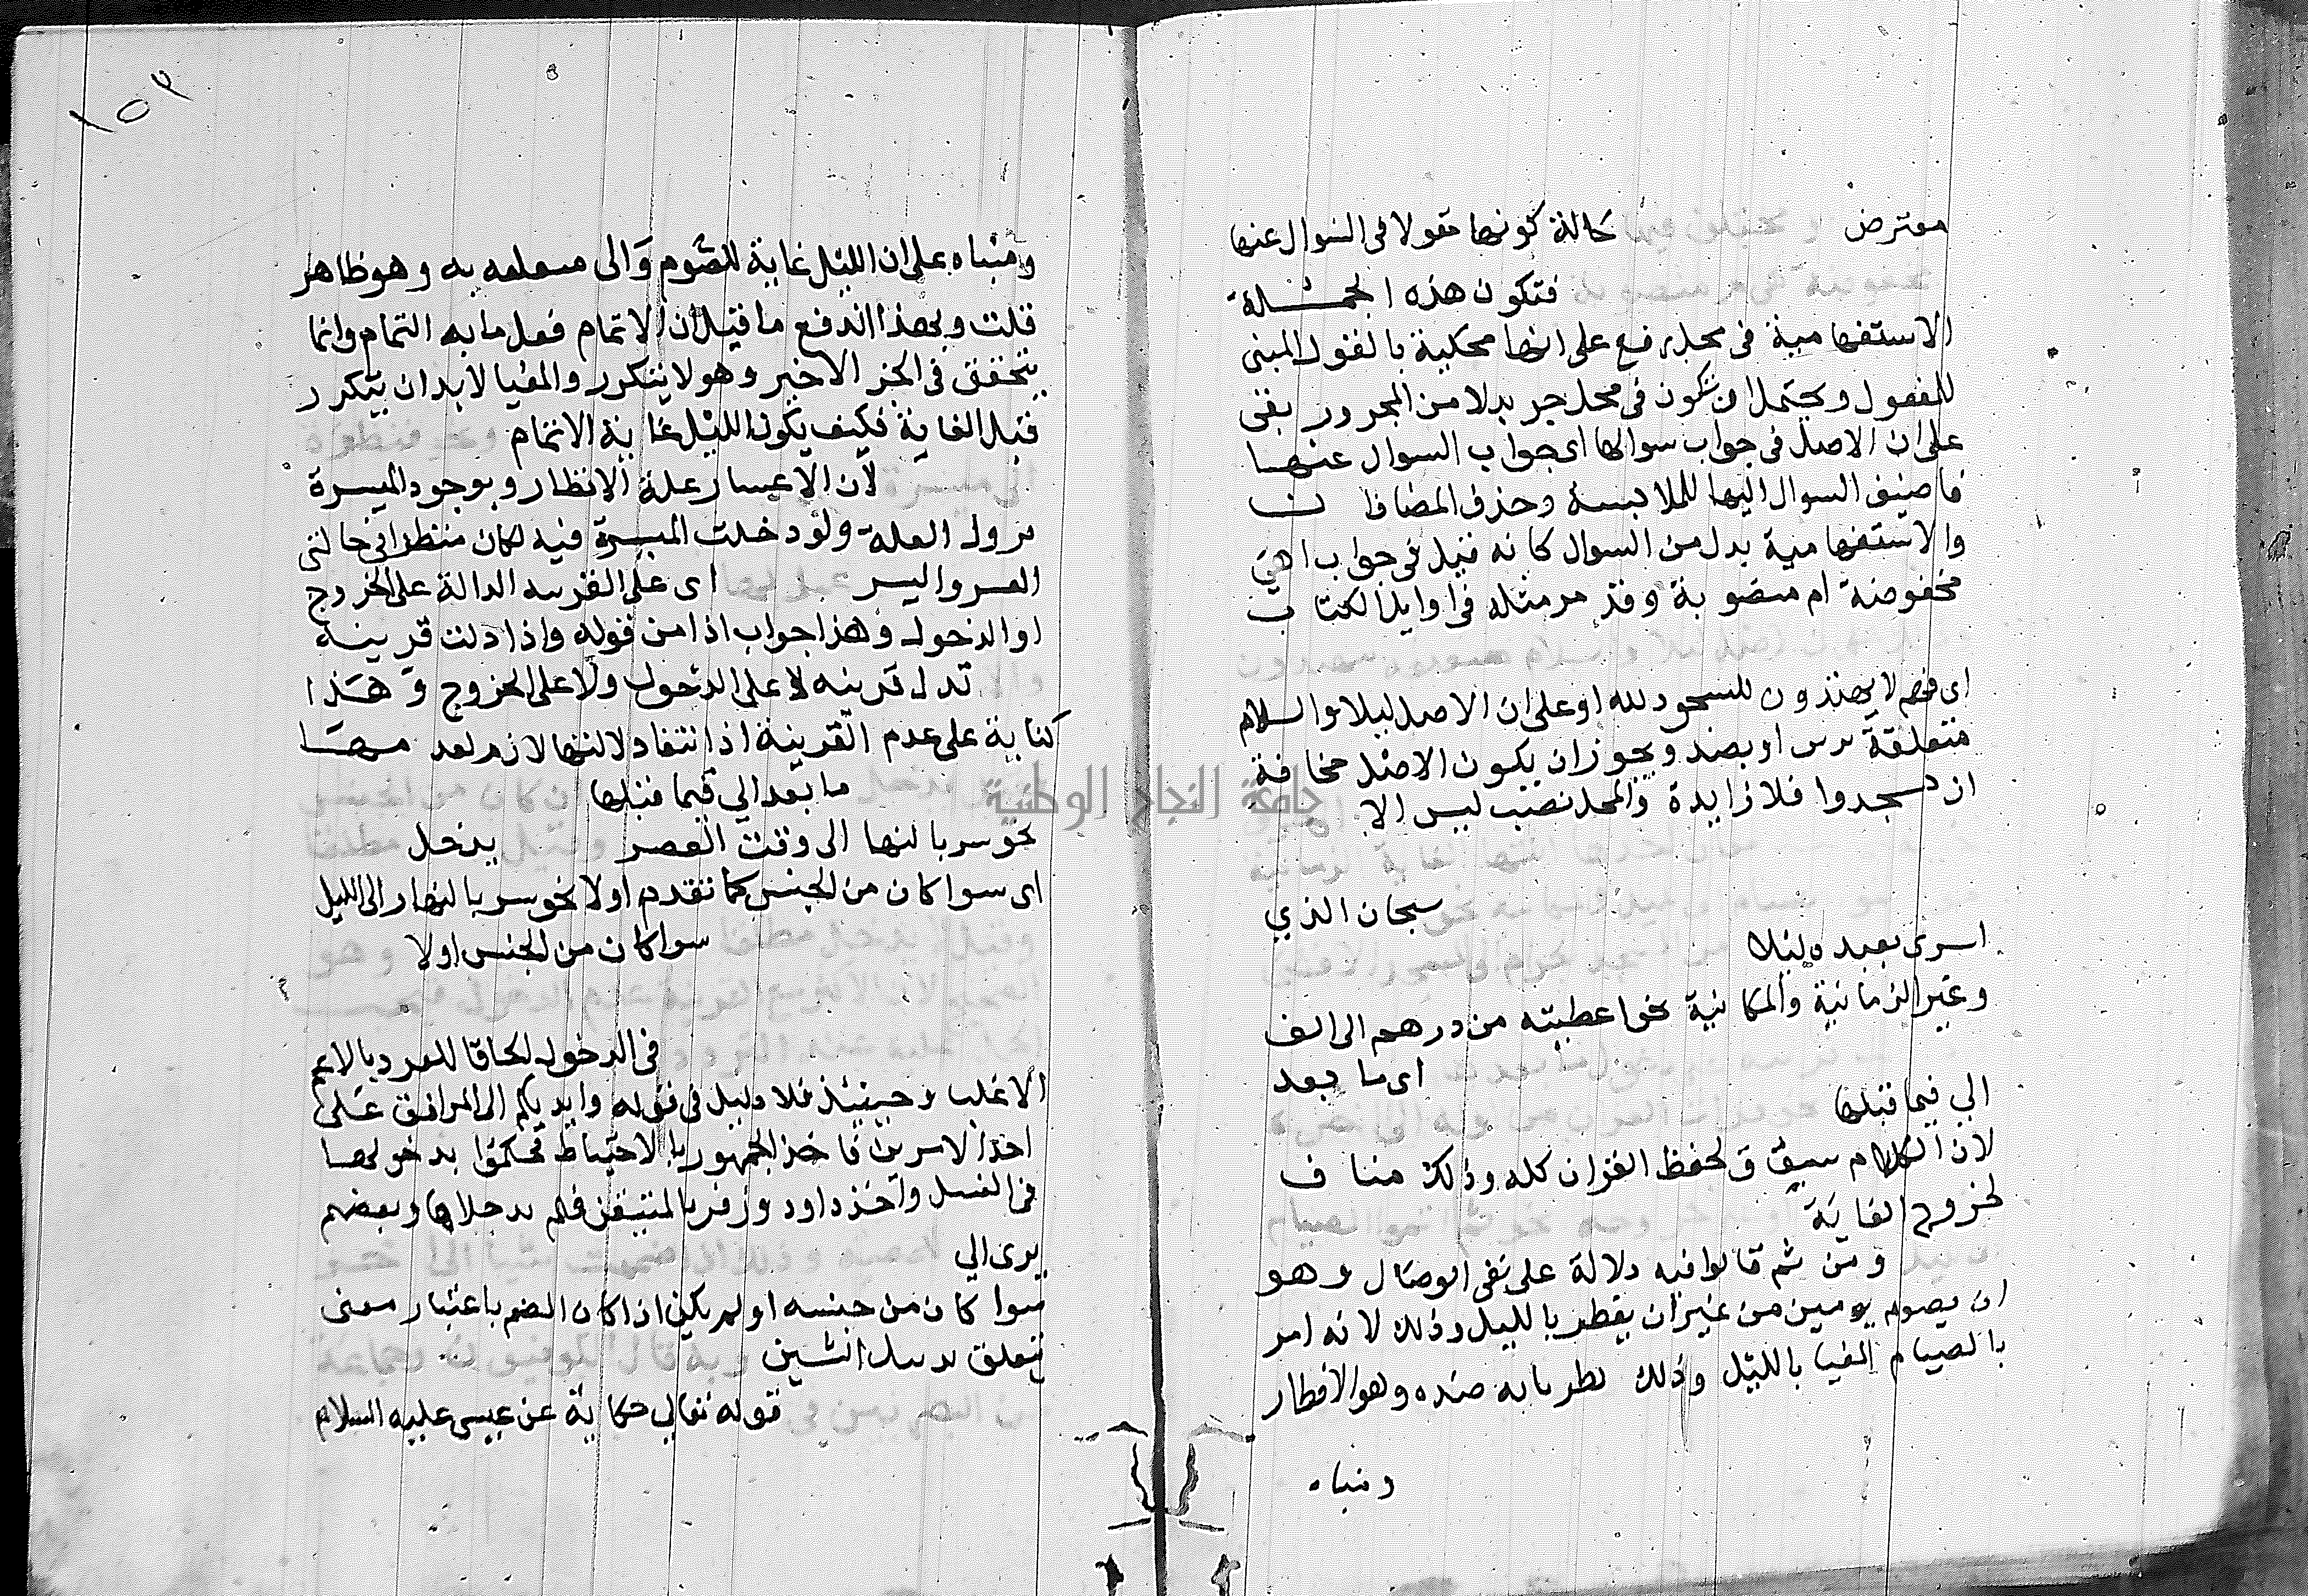 معترض حالة كونها مقولا في السوال عنها
فتكون هذه الجملة
الاستفهامية في محل رفع على انها محكية بالقول المبنى
للمفعول ويحتمل ان تكون في محل جر بدلا من المجرور بفى
على ان الاصل في جواب سوالها اى جواب السوال عنها
فاضيف السوال اليها للملابسة وحذف المضاف
والاستفهامية بدل من السوال كانه قيل في جواب اهي
مخفوضة ام منصوبة وقد مر مثله في اوايل الكتاب
اى فهم لا يهتدون للسجود لله او على ان الاصل ليلا والسلام
متعلقة او بصد ويجوز ان يكون الاصل مخافة
ان تسجدوا فلا زايدة والمحل نصب ليس الا
سبحان الذي
اسرى بعبده ليلا
وغير الزمانية والمكانية نحو اعطيته من درهم الى الف
اى ما بعد
الي فيما قبلها
لان الكلام سيق لحفظ القران كله وذلك مناف
لخروج الغاية
ومن ثم قالوا فيه دلالة على نفى الوصال وهو
ان يصوم يومين من غير ان يفطر بالليل وذلك لانه امر
بالصيام المغيا بالليل وذلك ضده وهو الافطار
ومبناه
١٥٣
ومبناه على ان الليل غاية للصوم والى به وهو ظاهر
قلت وبهذا اندفع ما قيل ان الاتمام فعل ما به التمام وانما
يتحقق في الجز الاخير وهو لا يتكرر والمغيا لا بد ان يتكرر
قبل الغاية فكيف يكون الليل غاية الاتمام
لان الاعسار علة الانظار وبوجود الميسرة
تزول العلة ولو دخلت الميسرة فيه لكان منتظرا في حالتى
العسر واليسر اى على القرينه الدالة على الخروج
او الدخول وهذا جواب اذا من قوله واذا دلت قرينة
تدل قرينه لا على الدخول ولا على الخروج وهذا
كناية على عدم القرينة اذ انتفا دلالتها لازم لعدمها
ما بعد الي فيما قبلها
نحو سر بالنها الى وقت العصر يدخل
اى سوا كان من الجنس كما تقدم اولا نحو سر بالنهار الى الليل
سوا كان من الجنس اولا
في الدخول الحاقا للفرد بالاعم
الاغلب وحينئذ فلا دليل في قوله وايديكم الى المرافق على
احد الامرين فاخذ الجمهور بالاحتياط فحكموا بدخولها
في الغسل واخذ داود وزفر بالمتيقن فلم يدخلاها وبعضهم
يرى الي
سوا كان من جنسه او لم يكن اذا كان الضم باعتبار معنى
تتعلق الشين
قوله تعالى حكاية عن عيسى عليه السلام
جامعة النجاح الوطنية